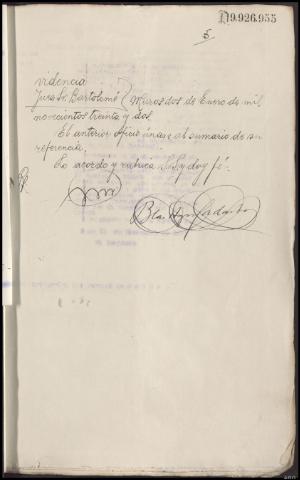 N9.926.955
5
videncia
Juez Sr. Bartolomé } Muros dos de Enero de mil
novecientos treinta y dos.
El anterior oficio únase al sumario de su
referencia.
Lo acordo y rubrica S.S. y doy fé.